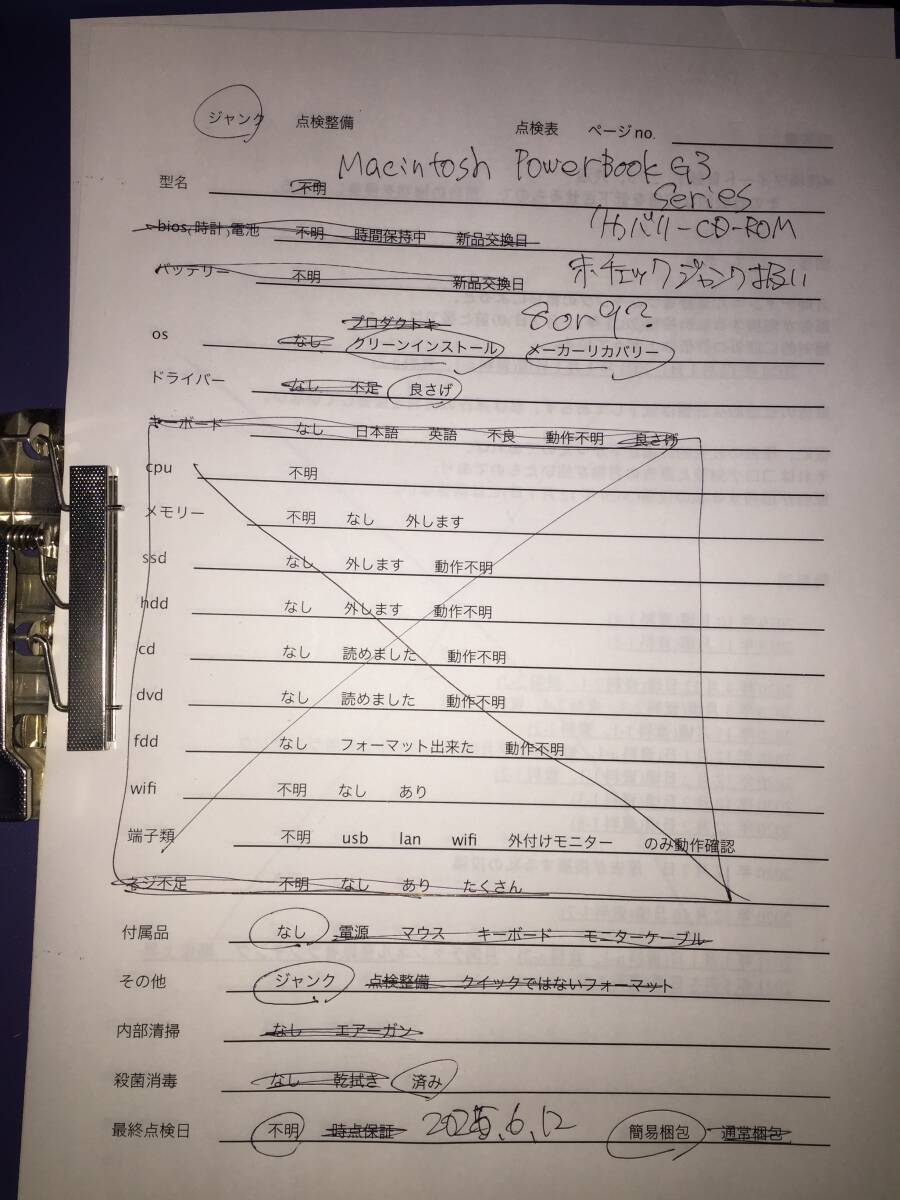 ジャンク 点検整備 点検表 ページno.
型名 不明 Macintosh PowerBook G3
Series
bios(時計)電池 不明 時間保持中 新品交換日 リカバリーCD-ROM
バッテリー 不明 新品交換日 未チェックジャンク扱い
プロダクトキー 8or9?
os なし クリーンインストール メーカーリカバリー
ドライバー なし 不足 良さげ
キーボード なし 日本語 英語 不良 動作不明 良さげ
cpu 不明
メモリー 不明 なし 外します
ssd なし 外します 動作不明
hdd なし 外します 動作不明
cd なし 読めました 動作不明
dvd なし 読めました 動作不明
fdd なし フォーマット出来た 動作不明
wifi 不明 なし あり
端子類 不明 usb lan wifi 外付けモニター のみ動作確認
ネジ不足 不明 なし あり たくさん
付属品 なし 電源 マウス キーボード モニターケーブル
その他 ジャンク 点検整備 クイックではないフォーマット
内部清掃 なし エアーガン
殺菌消毒 なし 乾拭き 済み
最終点検日 不明 時点保証 2025.6.12 簡易梱包 通常梱包